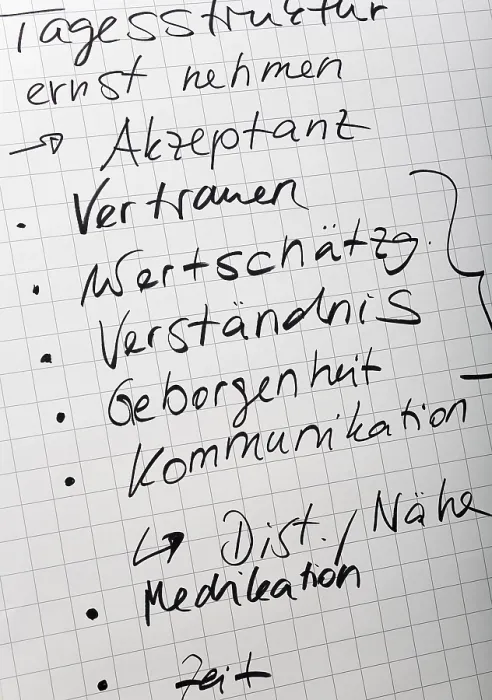 Tagesstruktur
ernst nehmen
→ Akzeptanz
• Vertrauen
• Wertschätzg.
• Verständnis
• Geborgenheit
• Kommunikation
↳ Dist. / Nähe
• Medikation
• Zeit